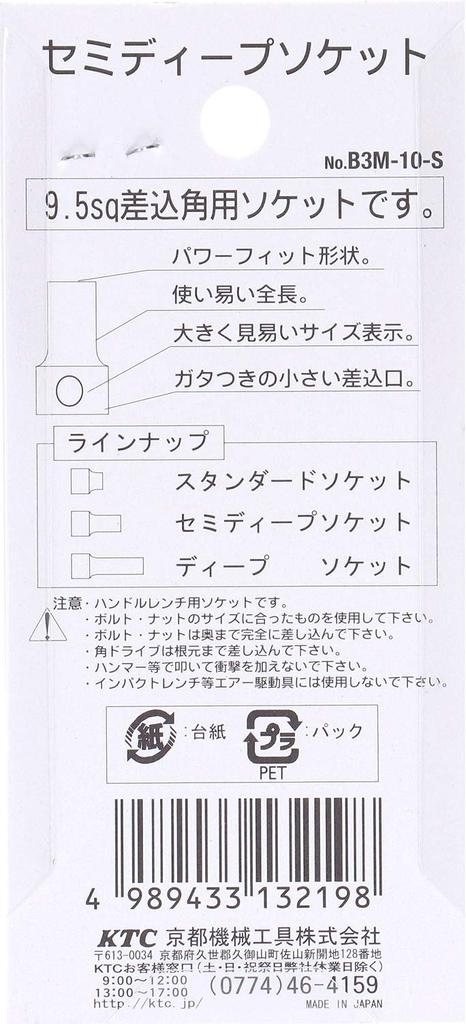 セミディープソケット
No.B3M-10-S
9.5sq差込角用ソケットです。
パワーフィット形状。
使い易い全長。
大きく見易いサイズ表示。
ガタつきの小さい差込口。
ラインナップ
スタンダードソケット
セミディープソケット
ディープ ソケット
注意・ハンドルレンチ用ソケットです。
・ボルト・ナットのサイズに合ったものを使用して下さい。
・ボルト・ナットは奥まで完全に差し込んで下さい。
・角ドライブは根元まで差し込んで下さい。
・ハンマー等で叩いて衝撃を加えないで下さい。
・インパクトレンチ等エアー駆動具には使用しないで下さい。
紙:台紙 プラ:パック
PET
4 989433 132198
KTC 京都機械工具株式会社
〒613-0034 京都府久世郡久御山町佐山新開地128番地
KTCお客様窓口(土・日・祝祭日弊社休業日除く)
9:00~12:00
13:00~17:00 (0774)46-4159
http://ktc.jp/ MADE IN JAPAN